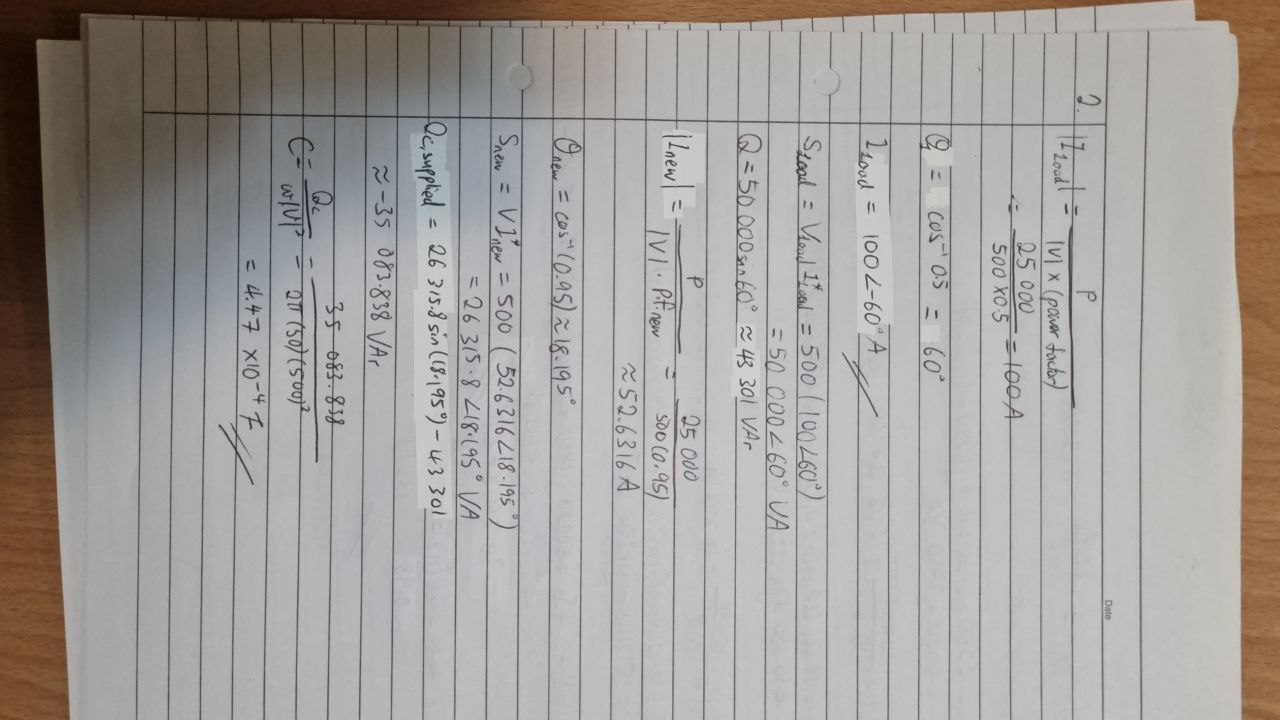 Date
2. |I_Load| = P / (|V| × (power factor))
= 25 000 / (500 × 0.5) = 100 A
θ_1 = cos⁻¹ 0.5 = 60°
I_Load = 100∠-60° A //
S_Load = V_Load I*_Load = 500 (100∠60°)
= 50 000∠60° VA
Q = 50 000 sin 60° ≈ 43 301 VAr
|I_new| = P / (|V| · P.f._new) = 25 000 / (500(0.95))
≈ 52.6316 A
θ_new = cos⁻¹(0.95) ≈ 18.195°
S_new = V I*_new = 500 (52.6316∠18.195°)
= 26 315.8∠18.195° VA
Q_c,supplied = 26 315.8 sin(18.195°) - 43 301
≈ -35 083.838 VAr
C = Q_c / (ω|V|²) = 35 083.838 / (2π(50)(500)²)
= 4.47 × 10⁻⁴ F //